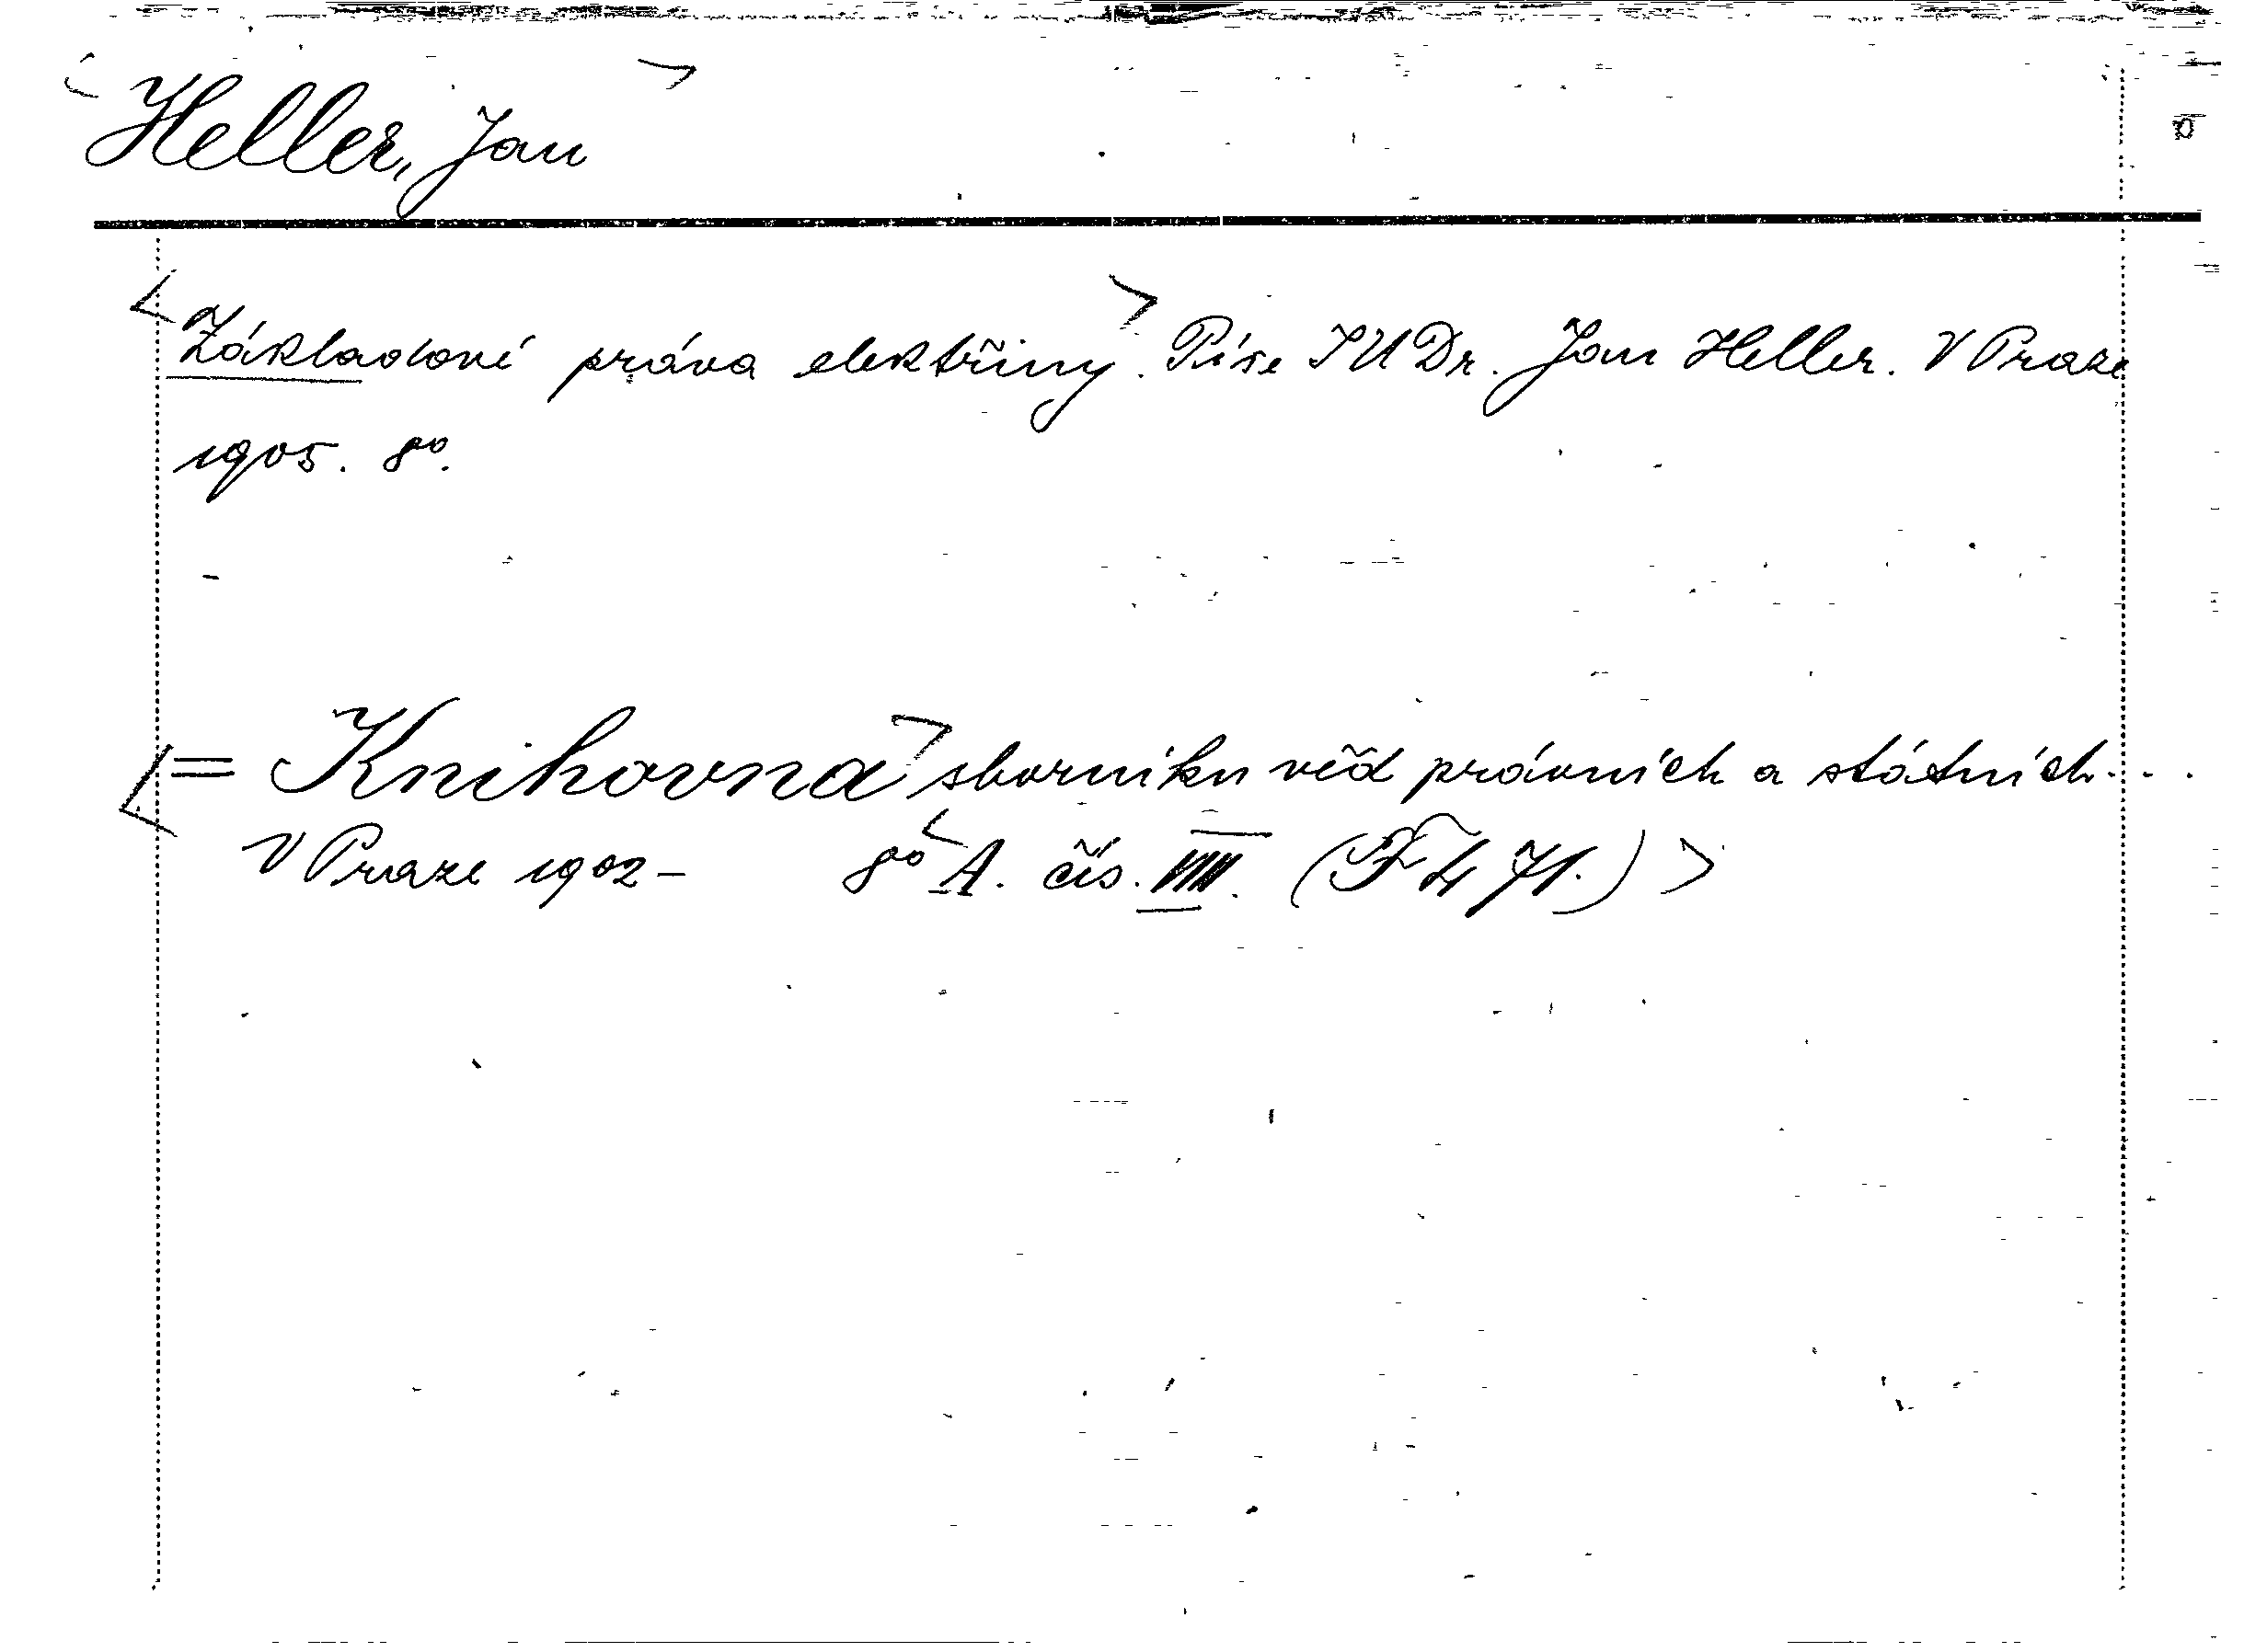 Heller, Jan
Základové práva elektřiny. Píše JUDr. Jan Heller. V Praze
1905. 8º.
= Knihovna sborníku věd právních a státních...
V Praze 1902- 8º A. čís. VIII. (F 471.)